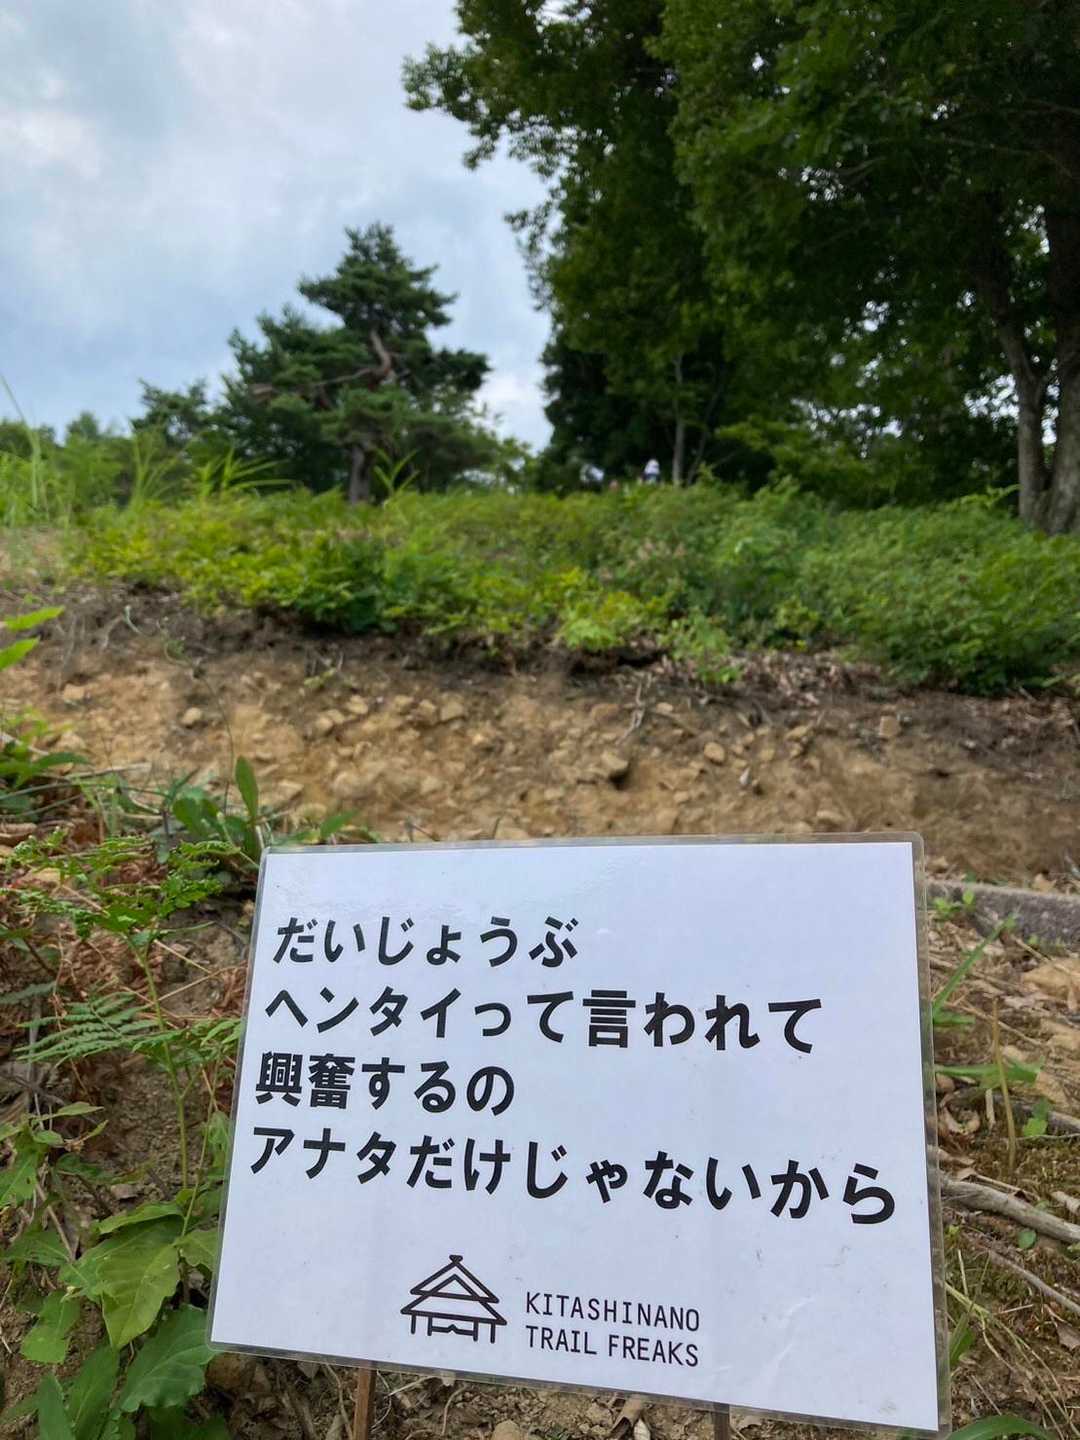 だいじょうぶ
ヘンタイって言われて
興奮するの
アナタだけじゃないから
KITASHINANO
TRAIL FREAKS